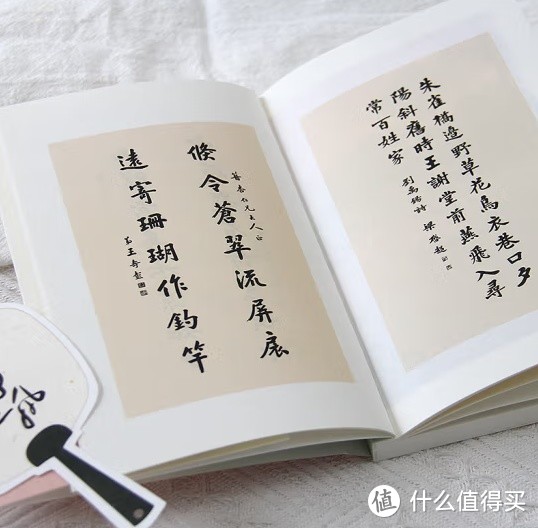 倏令蒼翠流屏扆
遠寄珊瑚作釣竿
朱雀橋邊野草花烏衣巷口夕
陽斜舊時王謝堂前燕飛入尋
常百姓家
劉禹錫詩
梁啓超
值 什么值得买